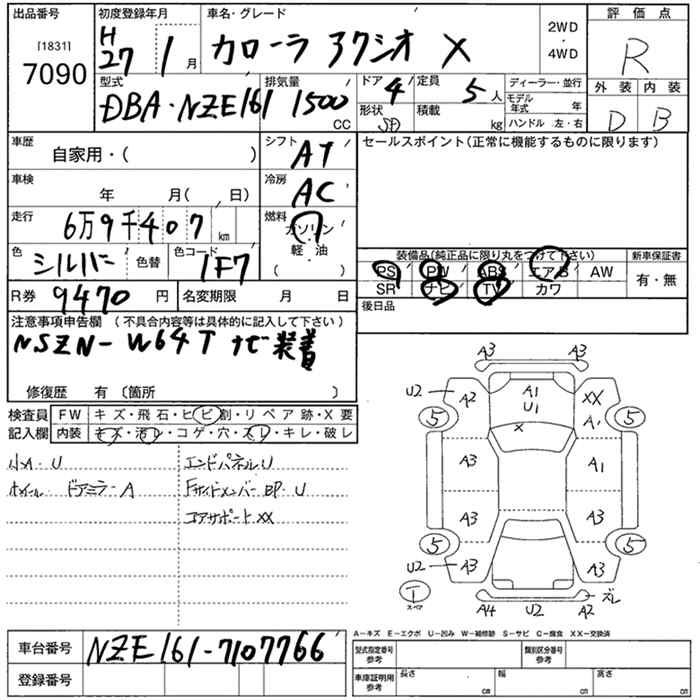 出品番号
[1831]
7090
初度登録年月
H
27 1 月
車名・グレード
カローラ アクシオ X
2WD
・
4WD
評価点
R
型式
DBA・NZE161
排気量
1500
CC
ドア
4
定員
5 人
形状
SD
積載
kg
ディーラー・並行
モデル年式 年
ハンドル 左・右
外装
D
内装
B
車歴
自家用・( )
シフト
AT
セールスポイント(正常に機能するものに限ります)
車検
年 月( 日)
冷房
AC
走行
6万9千407 km
燃料
ガソリン
軽・油
( )
色
シルバー 色替
色コード
1F7
装備品(純正品に限り丸をつけて下さい)
PS PW ABS エアB AW
SR ナビ TV カワ
新車保証書
有・無
R券 9470 円
名変期限 月 日
後日品
注意事項申告欄 (不具合内容等は具体的に記入して下さい)
NSZN-W64T ナビ装着
修復歴 有 〔箇所 〕
検査員
記入欄
FW キズ・飛石・ヒビ割・リペア跡・X要
内装 キズ・汚レ・コゲ・穴・スレ・キレ・破レ
小A・U
ホイール・ドアミラーA
エンドパネルU
FサイドメンバーBP・U
コアサポートXX
A3 A3
U2 A2 A1 U1 XX
5 X A1 5
A3 A1
A3 A3
5 5
U2 A3 A3
T
スペア
A4 U2 A2 ズレ
A-キズ E-エクボ U-凹み W-補修跡 S-サビ C-腐食 XX-交換済
車台番号 NZE161-7107766
登録番号
型式指定番号
参考
類別区分番号
参考
車庫証明用
参考
長さ
cm
幅
cm
高さ
cm